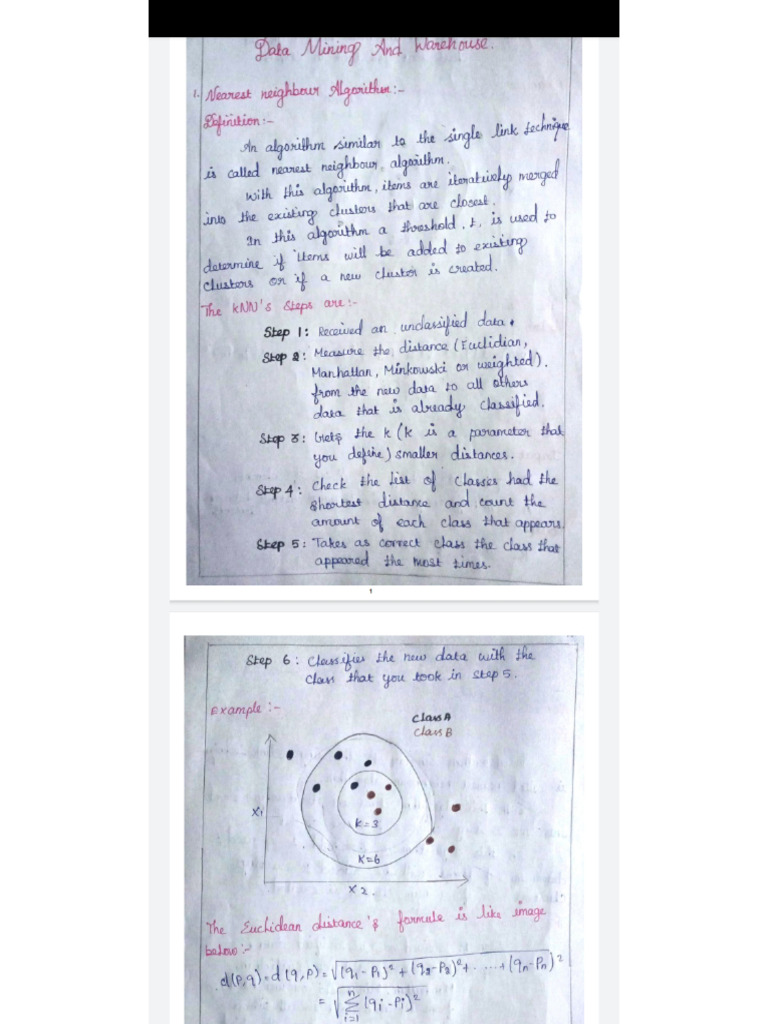 Data Mining And Warehouse.
1. Nearest neighbour Algorithm:-
Definition:-
An algorithm similar to the single link technique
is called nearest neighbour, algorithm.
With this algorithm, items are iteratively merged
into the existing clusters that are closest.
In this algorithm a threshold, t, is used to
determine if items will be added to existing
clusters or if a new cluster is created.
The KNN's Steps are:-
Step 1: Received an unclassified data.
Step 2: Measure the distance (Euclidian,
Manhattan, Minkowski or weighted).
from the new data to all others
data that is already classified.
Step 3: Gets the k (k is a parameter that
you define) smaller distances.
Step 4: Check the list of classes had the
shortest distance and count the
amount of each class that appears.
Step 5: Takes as correct class the class that
appeared the most times.
1
Step 6: Classifies the new data with the
class that you took in step 5.
Example:-
Class A
Class B
X1
K=3
K=6
X2.
The Euclidean distance's formule is like image
below:-
d(p,q)=d(q,p)=√(q1-p1)²+(q2-p2)²+.....+(qn-pn)²
=√∑ni=1(qi-pi)²